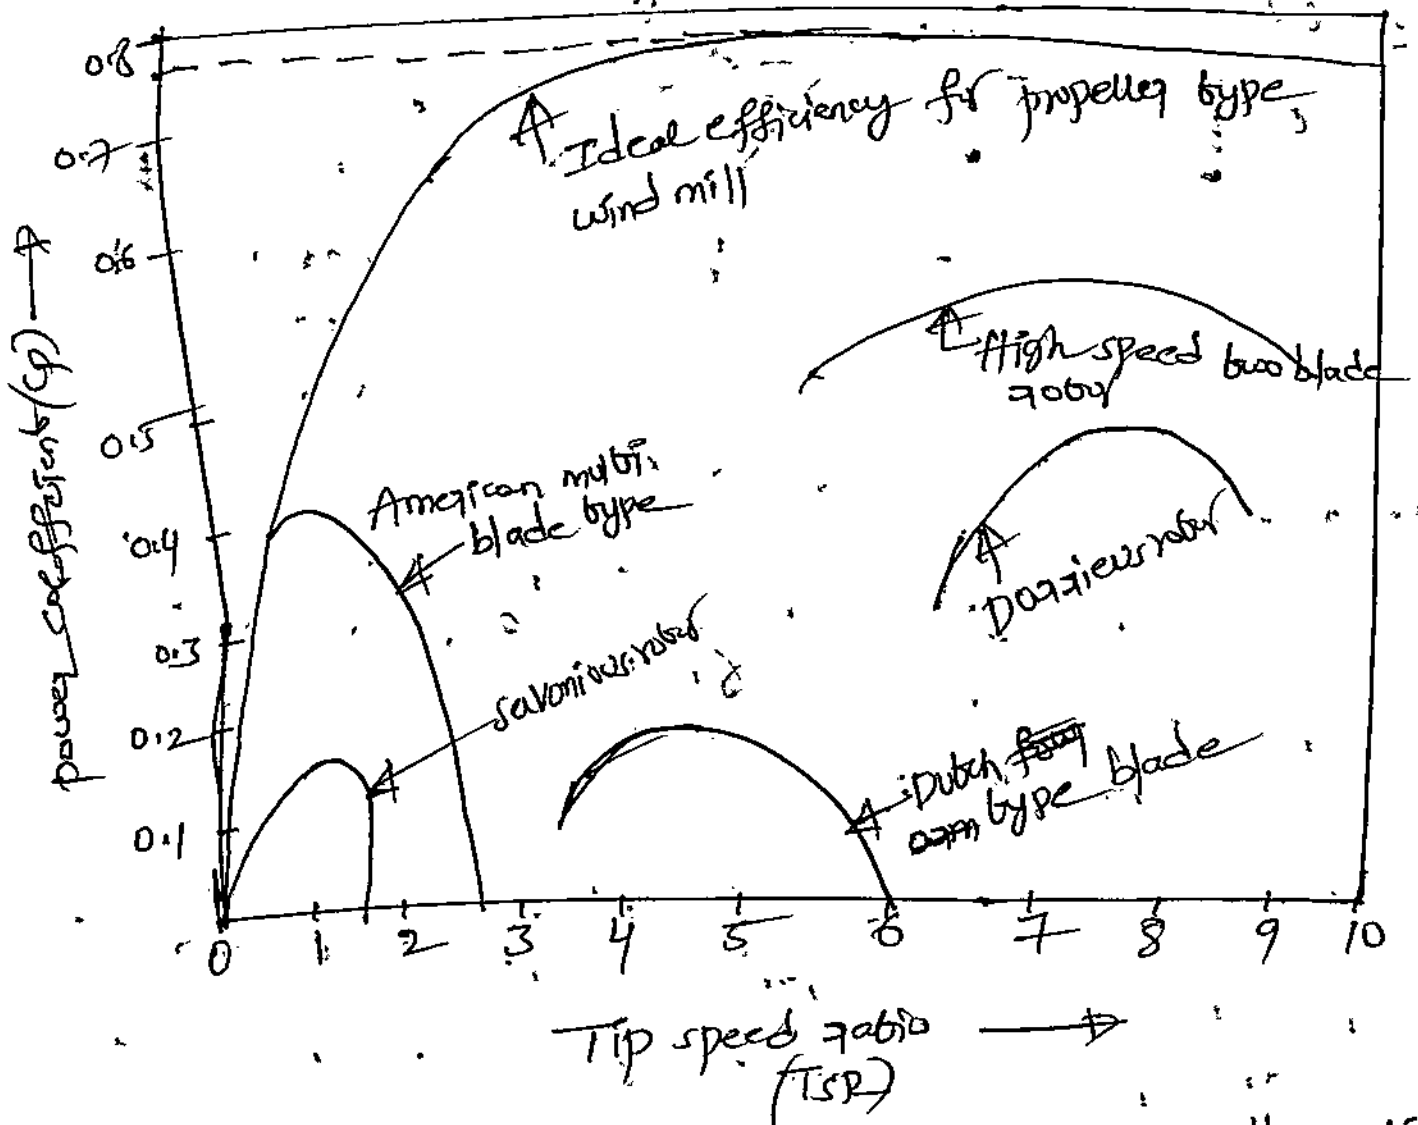 0.8
0.7
0.6
0.5
0.4
0.3
0.2
0.1
power coefficient (Cp)
Ideal efficiency for propeller type
wind mill
High speed two blade
rotor
American multi
blade type
Darrieus rotor
savonious rotor
Dutch
arm type blade
0 1 2 3 4 5 6 7 8 9 10
Tip speed ratio
(TSR)